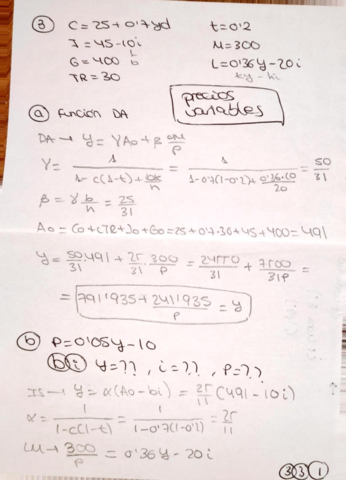 ③ C=25+0'7yd t=0'2
I=45-10i M=300
G=400 L=0'36y-20i
b
TR=30 ky-hi
precios variables
ⓐ Función DA
DA→ y=γA0+β M/P
γ= 1/(1-c(1-t)+bk/h) = 1/(1-0'7(1-0'2)+0'36·10/20) = 50/31
β=γ b/h = 25/31
A0=C0+cTR+I0+G0=25+0'7·30+45+400=491
y= 50/31·491+25/31·300/P = 24550/31 + 7500/31P =
= 791'935+ 241'935/P = y
ⓑ P=0'05y-10
b i y=??, i=??, P=??
IS→ y=α(A0-bi) = 25/11 (491-10i)
α= 1/(1-c(1-t)) = 1/(1-0'7(1-0'2)) = 25/11
LM→ 300/P = 0'36y-20i
③③①